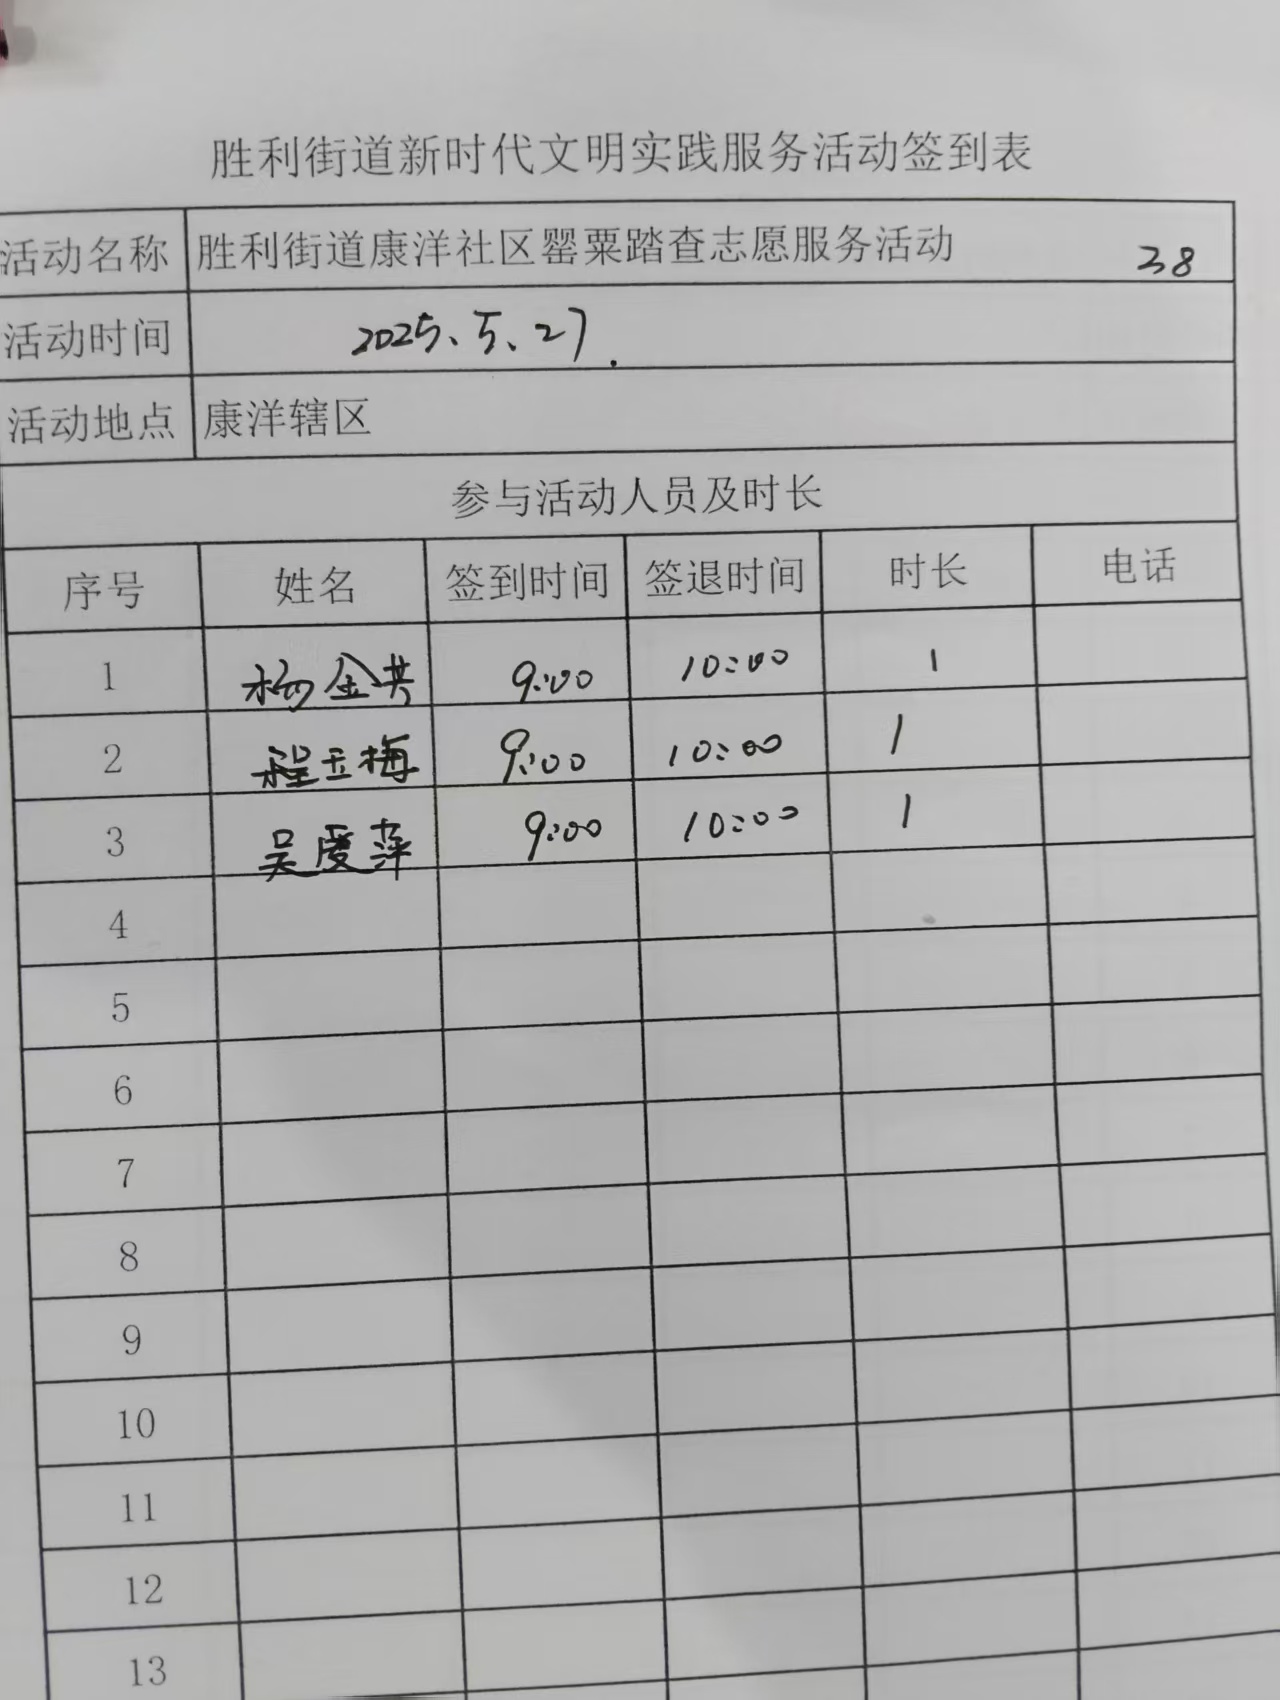 胜利街道新时代文明实践服务活动签到表
活动名称 胜利街道康洋社区罂粟踏查志愿服务活动 38
活动时间 2025、5、27.
活动地点 康洋辖区
参与活动人员及时长
序号 姓名 签到时间 签退时间 时长 电话
1 杨金共 9:00 10:00 1
2 程玉梅 9:00 10:00 1
3 吴爱萍 9:00 10:00 1
4
5
6
7
8
9
10
11
12
13